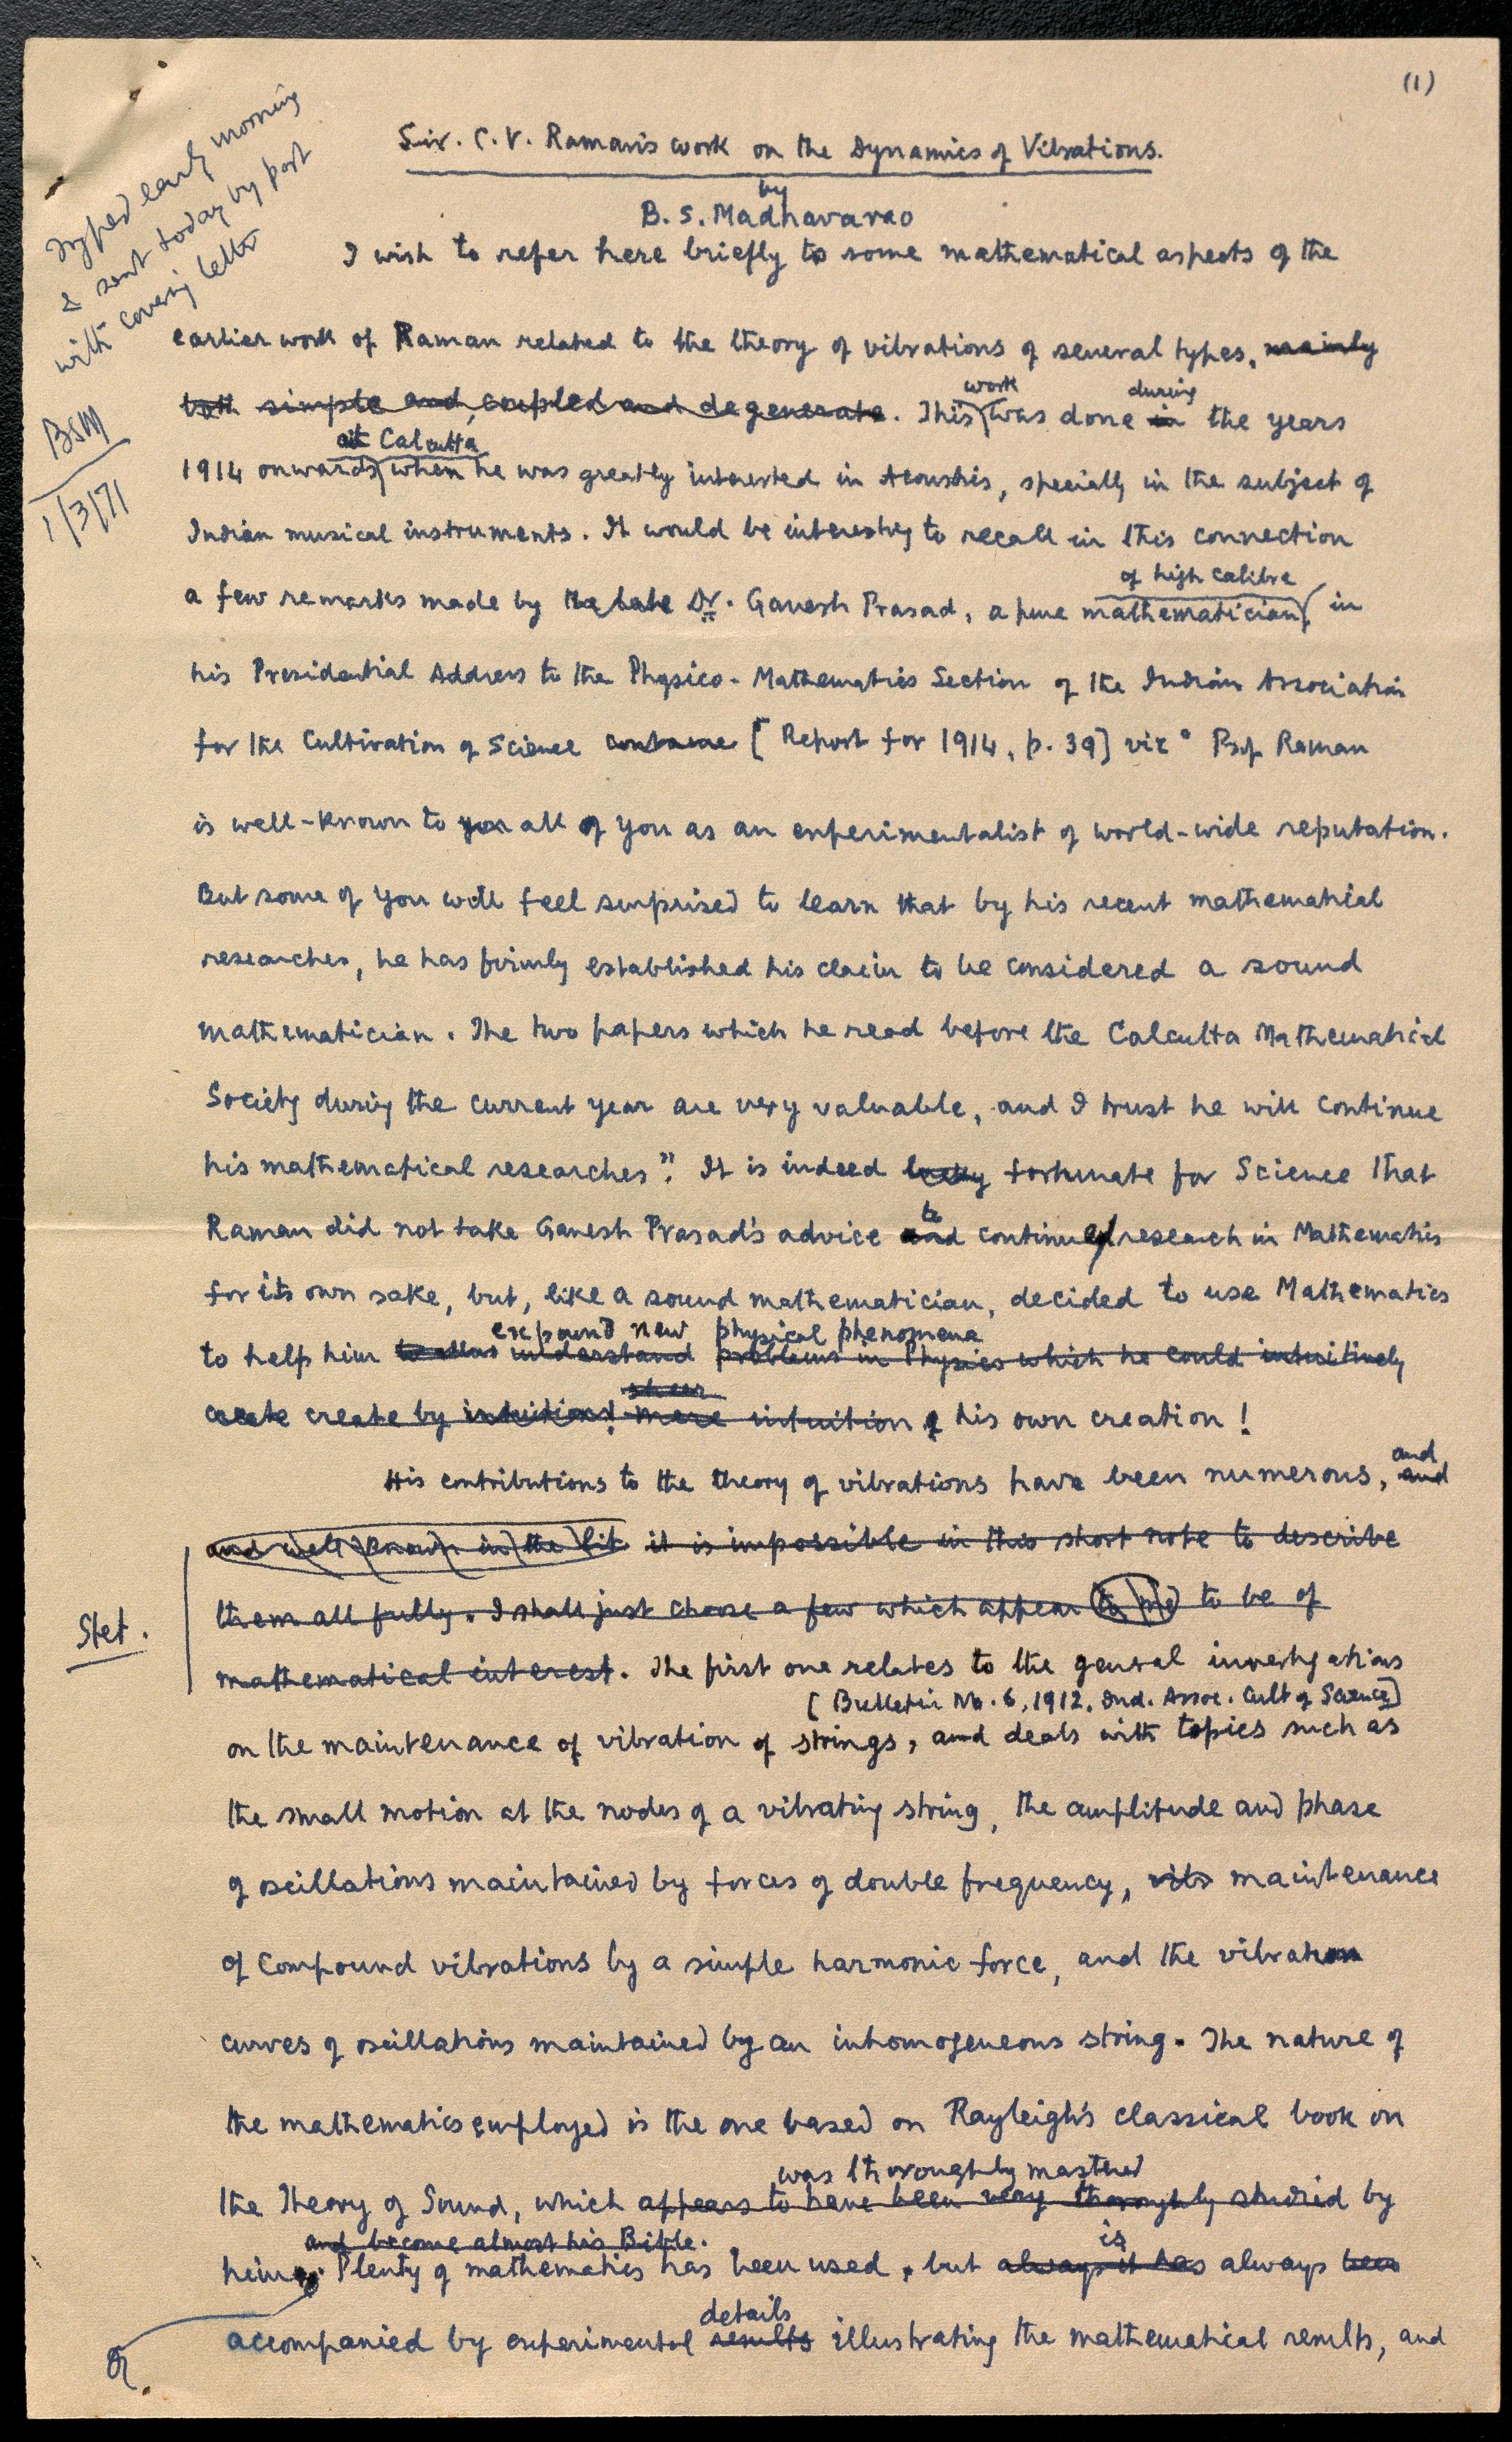 (1)
Typed early morning
& sent today by post
with covering letter
BSM
1/3/71
Sir. C. V. Raman's work on the Dynamics of Vibrations.
by
B. S. Madhavarao
I wish to refer here briefly to some mathematical aspects of the
earlier work of Raman related to the theory of vibrations of several types, mainly
both simple and coupled and degenerate. This work was done in during the years
1914 onwards at Calcutta when he was greatly interested in Acoustics, specially in the subject of
Indian musical instruments. It would be interesting to recall in this connection
a few remarks made by the late Dr. Ganesh Prasad, a pure mathematician of high calibre, in
his Presidential Address to the Physico-Mathematics Section of the Indian Association
for the Cultivation of Science [Report for 1914, p. 39] viz " Prof. Raman
is well-known to you all of you as an experimentalist of world-wide reputation.
But some of you will feel surprised to learn that by his recent mathematical
researches, he has firmly established his claim to be considered a sound
mathematician. The two papers which he read before the Calcutta Mathematical
Society during the current year are very valuable, and I trust he will continue
his mathematical researches". It is indeed lucky fortunate for Science that
Raman did not take Ganesh Prasad's advice and to continued research in Mathematics
for its own sake, but, like a sound mathematician, decided to use Mathematics
expound new physical phenomena
to help him understand problems in Physics which he could intuitively
sheer
create create by intuition! mere intuition of his own creation!
His contributions to the theory of vibrations have been numerous, and and
and well known in the lit it is impossible in this short note to describe
them all fully. I shall just choose a few which appear to me to be of
Stet.
mathematical interest. The first one relates to the general investigations
[Bulletin No. 6, 1912, Ind. Assoc. Cult of Science]
on the maintenance of vibration of strings, and deals with topics such as
the small motion at the nodes of a vibrating string, the amplitude and phase
of oscillations maintained by forces of double frequency, its maintenance
of compound vibrations by a simple harmonic force, and the vibration
curves of oscillations maintained by an inhomogeneous string. The nature of
the mathematics employed is the one based on Rayleigh's classical book on
was thoroughly mastered
the Theory of Sound, which appears to have been very thoroughly studied by
and become almost his Bible.
him. Plenty of mathematics has been used, but always it has is always been
accompanied by experimental results details illustrating the mathematical results, and